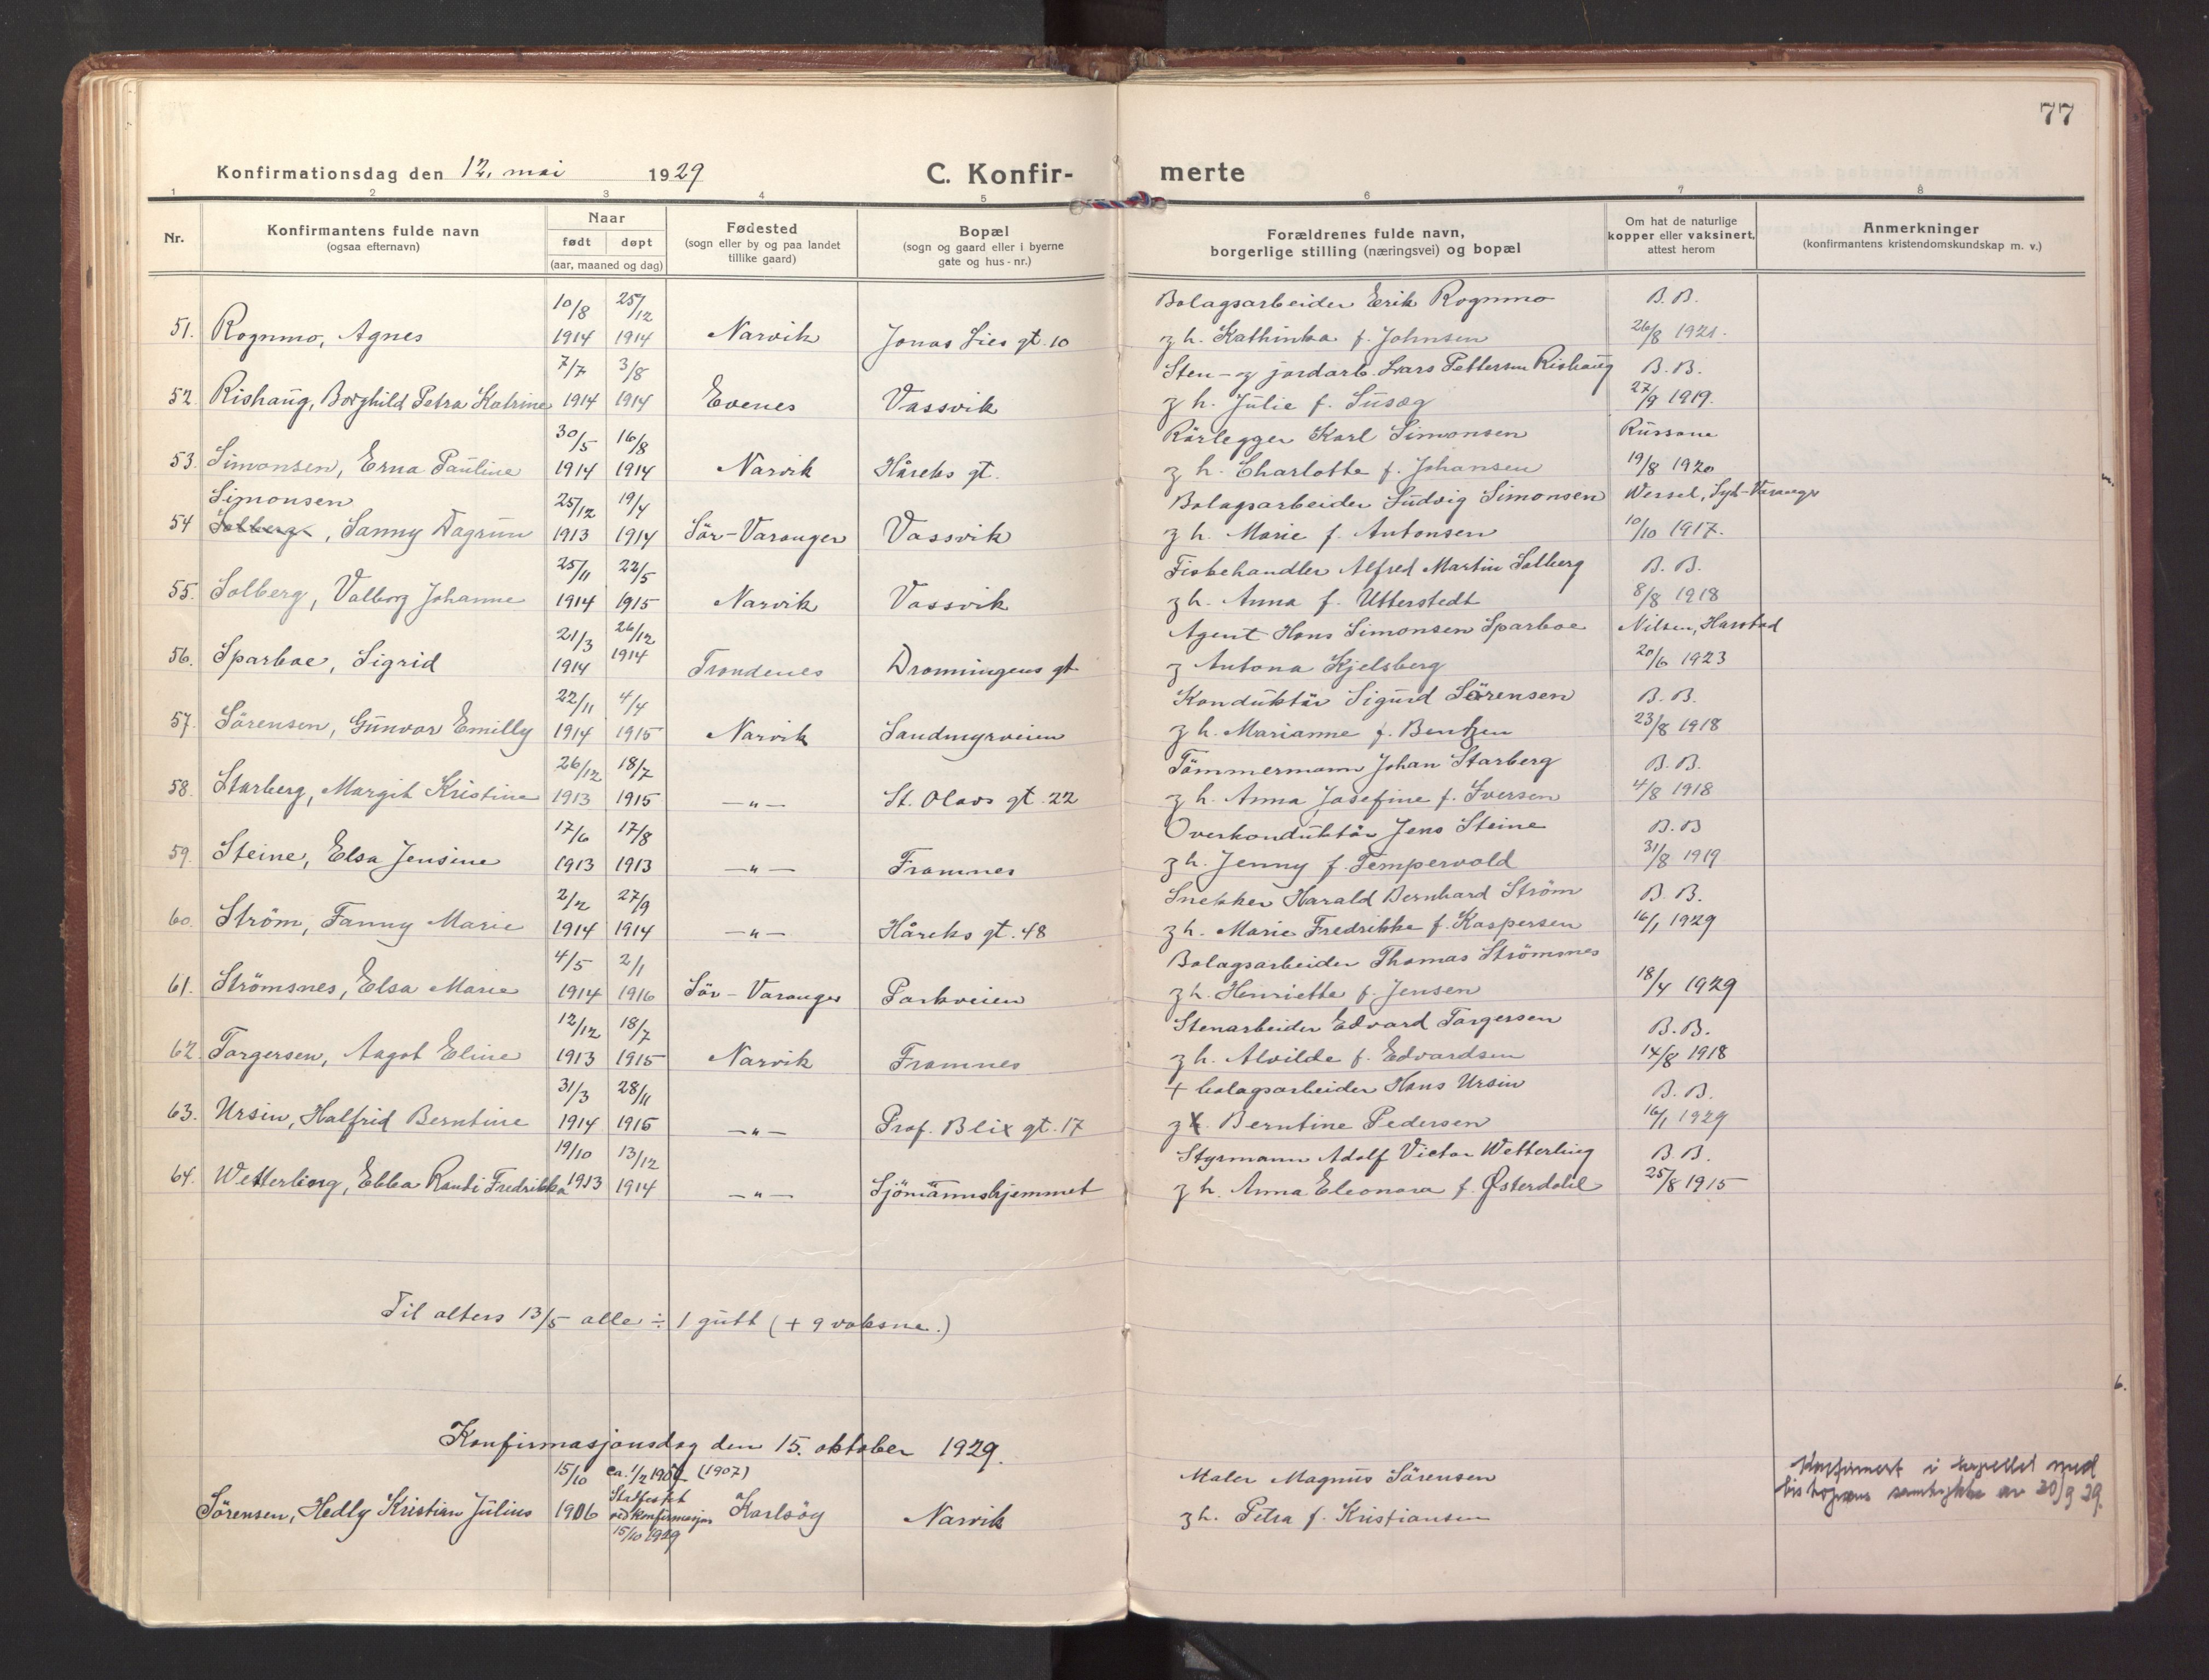 77
Konfirmationsdag den 12. mai 1929 C. Konfir- merte
1 2 3 4 5 6 7 8
Nr.
Konfirmantens fulde navn
(ogsaa efternavn)
Naar
født døpt
(aar, maaned og dag)
Fødested
(sogn eller by og paa landet
tillike gaard)
Bopæl
(sogn og gaard eller i byerne
gate og hus-nr.)
Forældrenes fulde navn,
borgerlige stilling (næringsvei) og bopæl
Om hat de naturlige
kopper eller vaksinert,
attest herom
Anmerkninger
(konfirmantens kristendomskundskap m. v.)
10/8 25/12 Bolagsarbeider Erik Rognmo B.B.
51. Rognmo, Agnes 1914 1914 Narvik Jonas Lies gt. 10 g h. Kathinka f. Johnsen 26/8 1921.
7/7 3/8 Sten- og jordarb. Lars Pettersen Rishaug B.B.
52 Rishaug, Borghild Petra Katrine 1914 1914 Evenes Vassvik g h. Julie f. Susæg 27/9 1919.
30/5 16/8 Rörlegger Karl Simonsen Russane
53. Simonsen, Erna Pauline 1914 1914 Narvik Håreks gt. g h. Charlotte f. Johansen 19/8 1920
Simonsen 25/12 19/4 Bolagsarbeider Ludvig Simonsen Wessel, Syd-Varanger
54 Solberg, Sanny Dagrun 1913 1914 Sör-Varanger Vassvik g h. Marie f. Antonsen 10/10 1917.
25/11 22/5 Fiskehandler Alfred Martin Solberg B.B.
55. Solberg, Valborg Johanne 1914 1915 Narvik Vassvik g h. Anna f. Utterstedt 8/8 1918
21/3 26/12 Agent Hans Simonsen Sparboe Nilsen, Harstad
56. Sparboe, Sigrid 1914 1914 Trondenes Dronningens gt g Antona Kjelsberg 20/6 1923
22/11 4/4 Konduktör Sigurd Sörensen B.B.
57. Sörensen, Gunvor Emilly 1914 1915 Narvik Sandmyrveien g h. Marianne f. Bentzen 23/8 1918
26/12 18/7 Tömmermann Johan Starberg B.B.
58. Starberg, Margit Kristine 1913 1915 —"— St. Olavs gt. 22 g h. Anna Josefine f. Iversen 4/8 1918
17/6 17/8 Overkonduktör Jens Steine B.B
59. Steine, Elsa Jensine 1913 1913 —"— Framnes g h. Jenny f. Tempervold 31/8 1919
2/2 27/9 Snekker Harald Bernhard Ström B.B.
60. Ström, Fanny Marie 1914 1914 —"— Håreks gt. 48 g h. Marie Fredrikke f. Kaspersen 16/1 1929
4/5 2/1 Bolagsarbeider Thomas Strömsnes
61. Strömsnes, Elsa Marie 1914 1916 Sör-Varanger Parkveien g h. Henriette f. Jensen 18/4 1929
12/12 18/7 Stenarbeider Edvard Torgersen B.B.
62. Torgersen, Aagot Eline 1913 1915 Narvik Framnes g h. Alvilde f. Edvardsen 14/8 1918
31/3 28/11 + bolagsarbeider Hans Ursin B.B.
63. Ursin, Halfrid Berntine 1914 1915 —"— Prof. Blix gt. 17 g h. Berntine Pedersen 16/1 1929
19/10 13/12 Styrmann Adolf Victor Wetterling B.B.
64. Wetterling, Ebba Randi Fredrikka 1913 1914 —"— Sjömannshjemmet g h. Anna Eleonora f. Østerdahl 25/8 1915
Til alters 13/5 alle ÷ 1 gutt (+ 9 voksne.)
6.
Konfirmasjonsdag den 15. oktober 1929.
15/10 ca. 1/2 1907 (1907) Maler Magnus Sörensen Konfirmert i kapellet med
Stadfestet biskopens samtykke av 20/9 29.
Sörensen, Hedly Kristian Julius 1906 ved konfirmasjon Karlsöy Narvik g h. Petra f. Kristiansen
15/10 1929